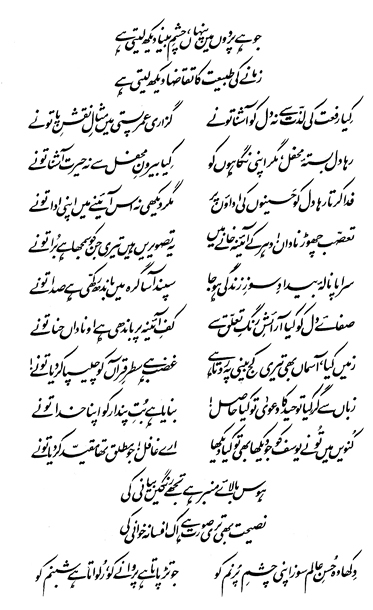 جو ہے پردوں میں پنہاں، چشمِ بینا دیکھ لیتی ہے
زمانے کی طبیعت کا تقاضا دیکھ لیتی ہے
کیا رفعت کی لذّت سے نہ دل کو آشنا تو نے گزاری عمر پستی میں مثالِ نقشِ پا تو نے
رہا دل بستۂ محفل مگر اپنی نگاہوں کو کیا بیرونِ محفل سے نہ حیرت آشنا تو نے
فدا کرتا رہا دل کو حسینوں کی اداؤں پر مگر دیکھی نہ اس آئینے میں اپنی ادا تو نے
تعصّب چھوڑ ناداں! دہر کے آئینہ خانے میں یہ تصویریں ہیں تیری جن کو سمجھا ہے بُرا تو نے
سراپا نالۂ بیدادِ سوزِ زندگی ہو جا سپند آسا گرہ میں باندھ رکھی ہے صدا تو نے
صفائے دل کو کیا آرائشِ رنگِ تعلّق سے کفِ آئینہ پر باندھی ہے او ناداں حنا تو نے
زمیں کیا، آسماں بھی تیری کج بینی پہ روتا ہے غضب ہے سطرِ قرآں کو چلیپا کر دیا تو نے!
زباں سے گر کیا توحید کا دعویٰ تو کیا حاصل! بنایا ہے بُتِ پندار کو اپنا خدا تو نے
کنویں میں تُو نے یوسف کو جو دیکھا بھی تو کیا دیکھا اے غافل! جو مطلق تھا مقیّد کر دیا تو نے
ہوس بالائے منبر ہے تجھے رنگیں بیانی کی
نصیحت بھی تری صورت ہے اک افسانہ خوانی کی
دکھا وہ حُسنِ عالم سوز اپنی چشمِ پُرنم کو جو تڑپاتا ہے پروانے کو رُلواتا ہے شبنم کو